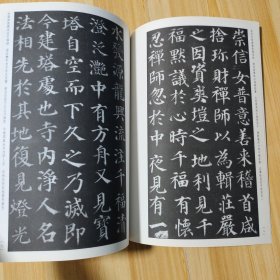 崇信女普意善來稽首咸
捨珍財禪師以為輯莊嚴
之因資爽塏之地利見千
福默議於心時千福有懷
忍禪師忽於中夜見有一
水發源龍興流注千福清
澄泛灩中有方舟又見寶
塔自空而下久之乃滅即
今建塔處也寺內淨人名
法相先於其地復見燈光